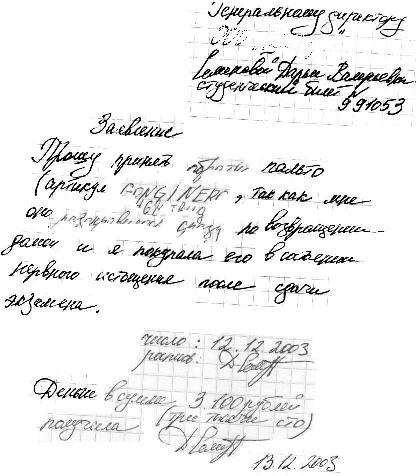 Генеральному директору
Семиковой Дарьи Валерьевны
студенческий билет №
991053
Заявление
Прошу принять обратно пальто
(артикул , так как мне
оно разонравилось сразу по возвращении
домой и я покупала его в состоянии
нервного истощения после сдачи
экзамена.
число: 12.12.2003
роспись:
Деньги в сумме 3100 рублей
получила (три тысячи сто)
13.12.2003